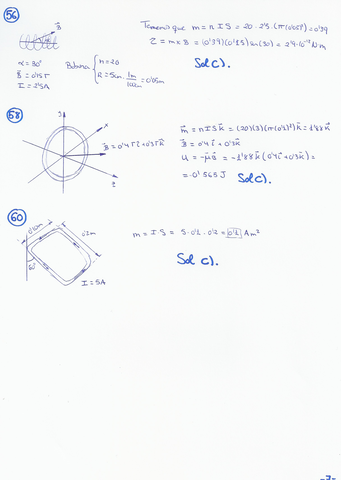 56
B⃗
Tenemos que m = n I S = 20 · 2'5 · (π(0'05)²) = 0'39
τ = m × B = (0'39)(0'15) sen(30) = 2'9·10⁻² N m
α = 30°
B = 0'15 T
I = 2'5 A
Bobina { n = 20
R = 5cm · 1m/100cm = 0'05m
Sol C).
58
z
x
B⃗ = 0'4 i⃗ + 0'3 k⃗
m⃗ = n I S k⃗ = (20)(3)(π(0'1)²) k⃗ = 1'88 k⃗
B⃗ = 0'4 i⃗ + 0'3 k⃗
U = -μ⃗ B⃗ = -1'88 k⃗ (0'4 i⃗ + 0'3 k⃗) =
= -0'565 J
Sol C).
60
0'2m
60°
I = 5A
m = I S = 5 · 0'1 · 0'2 = 0'1 A m²
Sol C).
-7-